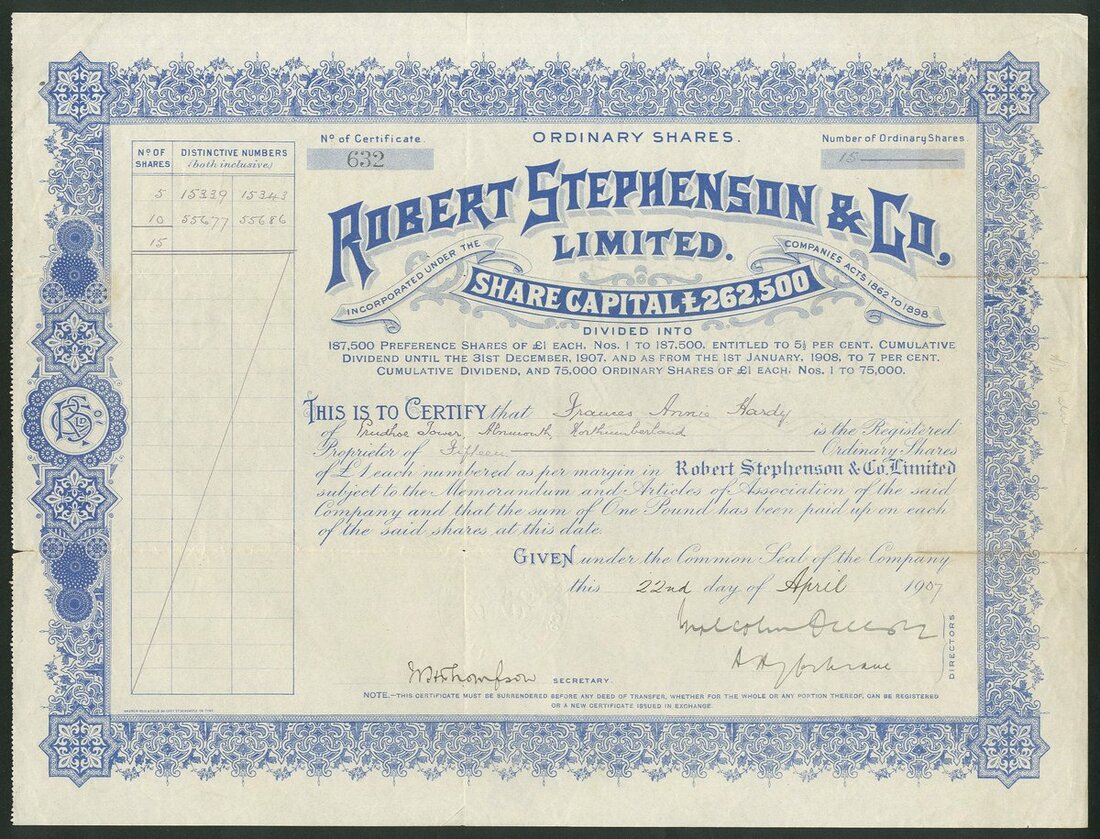 Nº of Certificate.
632
ORDINARY SHARES.
Number of Ordinary Shares
15
Nº OF SHARES
DISTINCTIVE NUMBERS
(both inclusive)
5 15339 15343
10 55677 55686
15
ROBERT STEPHENSON & Co.
LIMITED.
INCORPORATED UNDER THE
COMPANIES ACTS 1862 TO 1898.
SHARE CAPITAL £262,500
DIVIDED INTO
187,500 PREFERENCE SHARES OF £1 EACH, Nos. 1 TO 187,500, ENTITLED TO 5½ PER CENT. CUMULATIVE
DIVIDEND UNTIL THE 31ST DECEMBER, 1907, AND AS FROM THE 1ST JANUARY, 1908, TO 7 PER CENT.
CUMULATIVE DIVIDEND, AND 75,000 ORDINARY SHARES OF £1 EACH, Nos. 1 TO 75,000.
THIS IS TO CERTIFY that Frances Annie Hardy
of Prudhoe Tower, Alnmouth, Northumberland is the Registered
Proprietor of Fifteen Ordinary Shares
of £1 each numbered as per margin in Robert Stephenson & Co. Limited
subject to the Memorandum and Articles of Association of the said
Company and that the sum of One Pound has been paid up on each
of the said shares at this date.
GIVEN under the Common Seal of the Company
this 22nd day of April 1907
DIRECTORS
W H Thompson SECRETARY.
NOTE.—THIS CERTIFICATE MUST BE SURRENDERED BEFORE ANY DEED OF TRANSFER, WHETHER FOR THE WHOLE OR ANY PORTION THEREOF, CAN BE REGISTERED
OR A NEW CERTIFICATE ISSUED IN EXCHANGE.